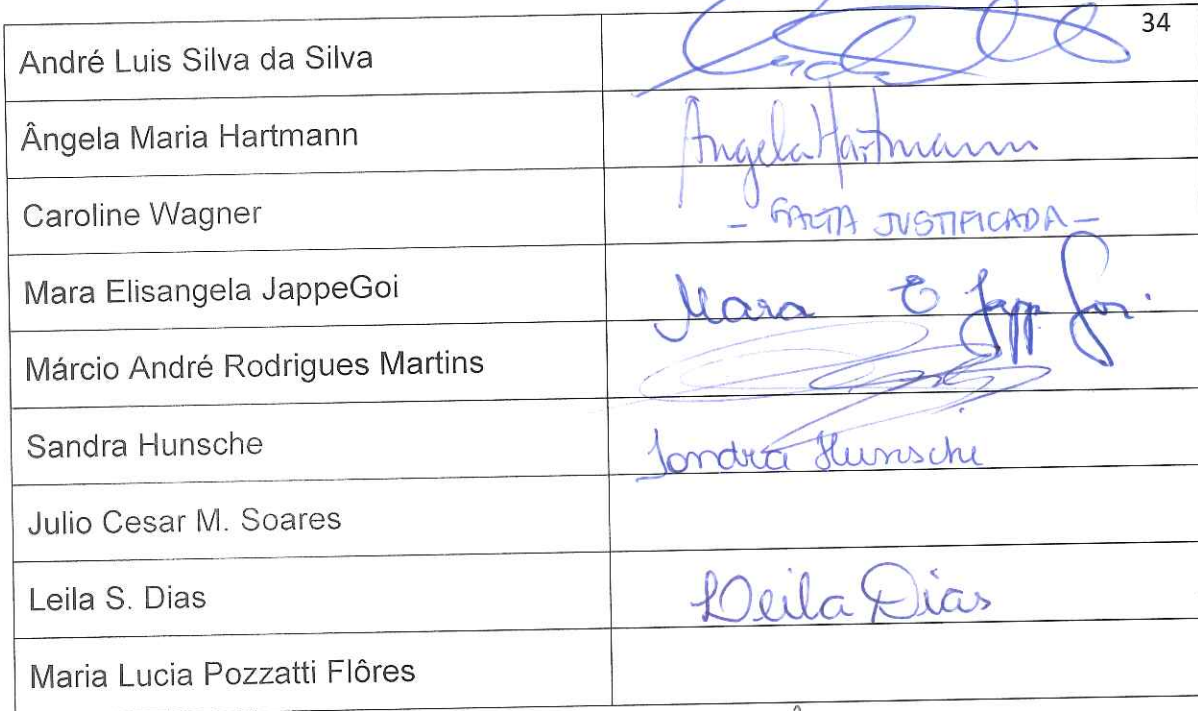 34
André Luis Silva da Silva
Ângela Maria Hartmann Angela Hartmann
Caroline Wagner - FALTA JUSTIFICADA -
Mara Elisangela JappeGoi Mara E Japp Goi.
Márcio André Rodrigues Martins
Sandra Hunsche Sandra Hunsche
Julio Cesar M. Soares
Leila S. Dias Leila Dias
Maria Lucia Pozzatti Flôres